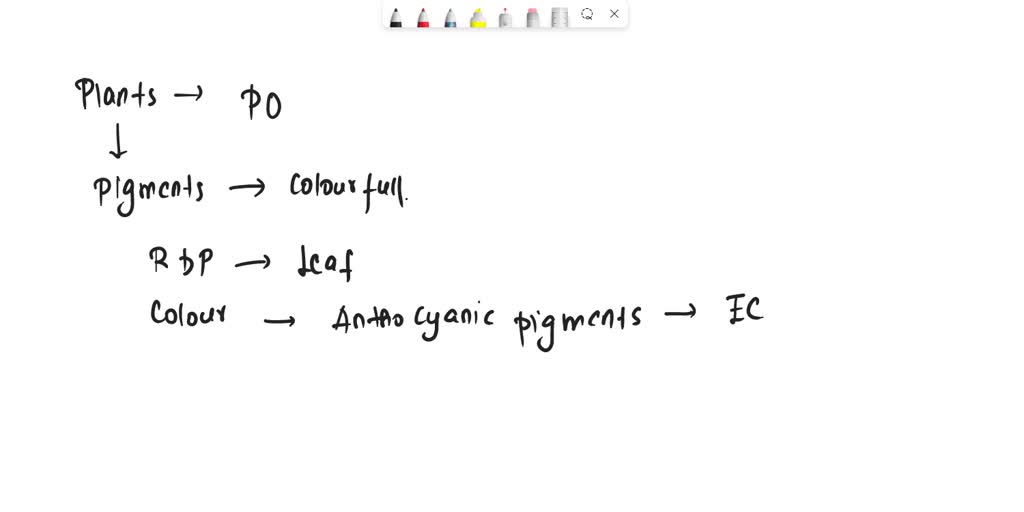 Plants → PO
↓
Pigments → Colourfull.
R & P → Leaf
Colour → Anthocyanic pigments → EC